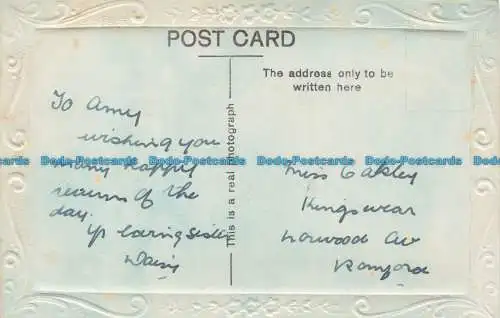 POST CARD
The address only to be
written here
This is a real photograph
To Amy
wishing you
many happy
returns of the
day.
yr loving sister
Daisy
Miss Oakley
Kingswear
Norwood Av
Romford
Dodo-Postcards Dodo-Postcards Dodo-Postcards Dodo-Postcards Dodo-Postcards